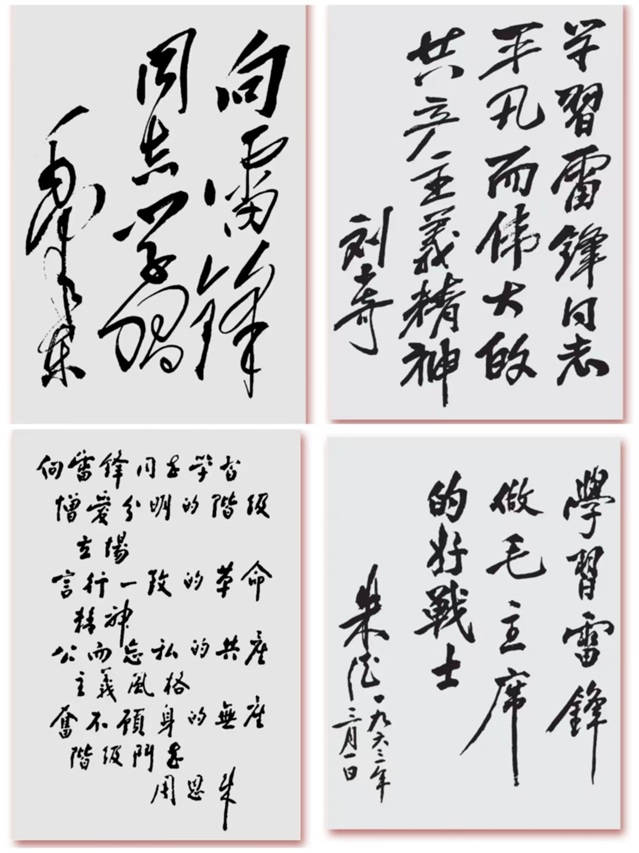 向雷锋
同志学习
毛泽东
学習雷锋同志
平凡而伟大的
共产主義精神
刘少奇
向雷锋同志学習
憎愛分明的階級
立場
言行一致的革命
精神
公而忘私的共産
主義風格
奮不顧身的無産
階級鬥志
周恩来
學習雷锋
做毛主席
的好戰士
朱德 一九六三年
三月一日